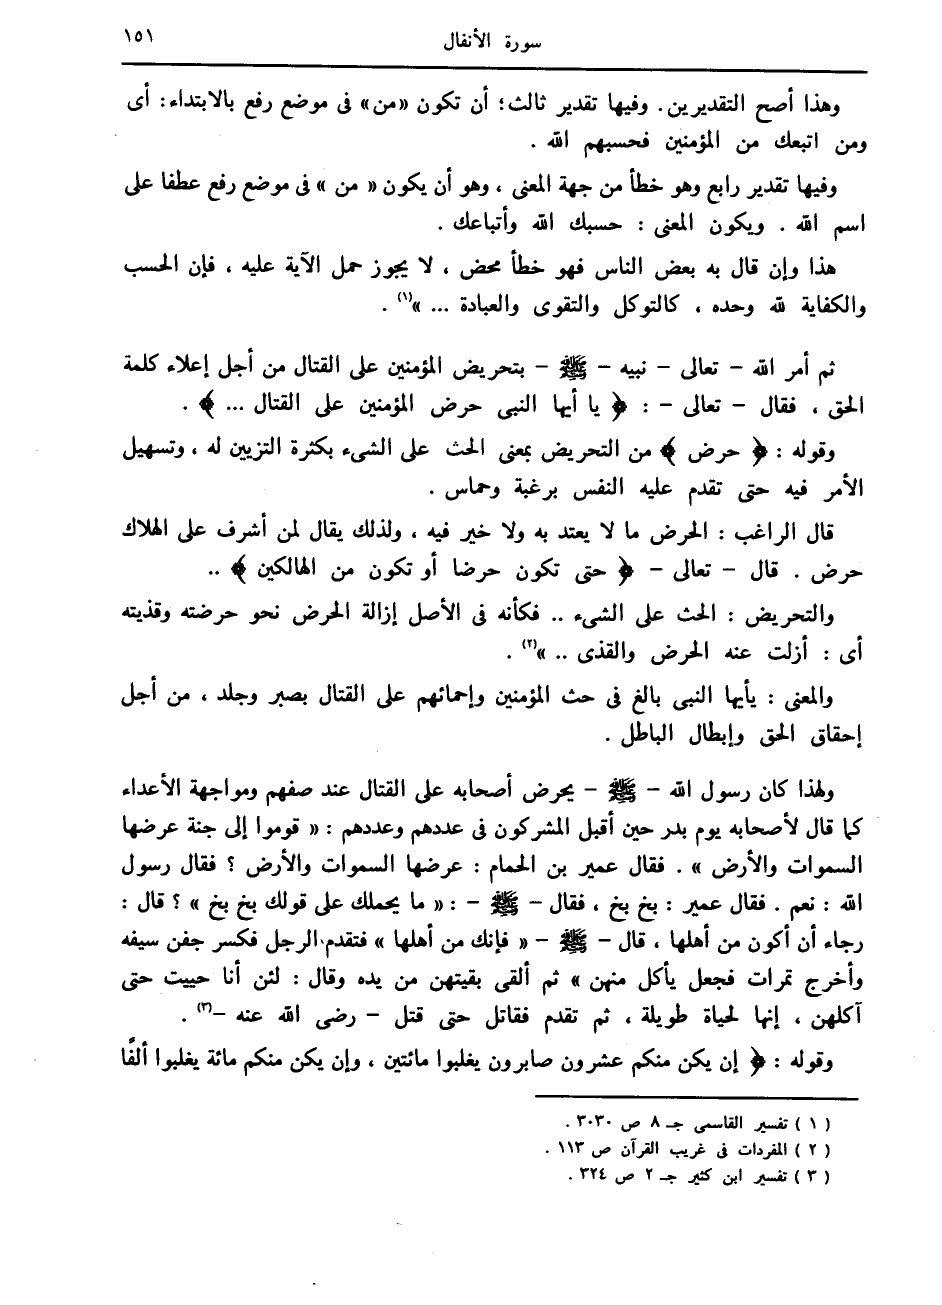 سورة الأنفال ١٥١
وهذا أصح التقديرين. وفيها تقدير ثالث؛ أن تكون «من» فى موضع رفع بالابتداء: أى
ومن اتبعك من المؤمنين فحسبهم الله .
وفيها تقدير رابع وهو خطأ من جهة المعنى ، وهو أن يكون « من » فى موضع رفع عطفا على
اسم الله . ويكون المعنى : حسبك الله وأتباعك .
هذا وإن قال به بعض الناس فهو خطأ محض ، لا يجوز حمل الآية عليه ، فإن الحسب
والكفاية لله وحده ، كالتوكل والتقوى والعبادة ... »(١) .
ثم أمر الله – تعالى – نبيه – ﷺ – بتحريض المؤمنين على القتال من أجل إعلاء كلمة
الحق ، فقال – تعالى – : ﴿ يا أيها النبى حرض المؤمنين على القتال ... ﴾ .
وقوله : ﴿ حرض ﴾ من التحريض بمعنى الحث على الشىء بكثرة التزيين له ، وتسهيل
الأمر فيه حتى تقدم عليه النفس برغبة وحماس .
قال الراغب : الحرض ما لا يعتد به ولا خير فيه ، ولذلك يقال لمن أشرف على الهلاك
حرض . قال – تعالى – ﴿ حتى تكون حرضا أو تكون من الهالكين ﴾ ..
والتحريض : الحث على الشىء .. فكأنه فى الأصل إزالة الحرض نحو حرضته وقذيته
أى : أزلت عنه الحرض والقذى .. »(٢) .
والمعنى : يأيها النبى بالغ فى حث المؤمنين وإحمائهم على القتال بصبر وجلد ، من أجل
إحقاق الحق وإبطال الباطل .
ولهذا كان رسول الله – ﷺ – يحرض أصحابه على القتال عند صفهم ومواجهة الأعداء
كما قال لأصحابه يوم بدر حين أقبل المشركون فى عددهم وعددهم : « قوموا إلى جنة عرضها
السموات والأرض » . فقال عمير بن الحمام : عرضها السموات والأرض ؟ فقال رسول
الله : نعم . فقال عمير : بخ بخ ، فقال – ﷺ – : « ما يحملك على قولك بخ بخ » ؟ قال :
رجاء أن أكون من أهلها ، قال – ﷺ – « فإنك من أهلها » فتقدم الرجل فكسر جفن سيفه
وأخرج تمرات فجعل يأكل منهن » ثم ألقى بقيتهن من يده وقال : لئن أنا حييت حتى
آكلهن ، إنها لحياة طويلة ، ثم تقدم فقاتل حتى قتل – رضى الله عنه –(٣) .
وقوله : ﴿ إن يكن منكم عشرون صابرون يغلبوا مائتين ، وإن يكن منكم مائة يغلبوا ألفًا
( ١ ) تفسير القاسمى جـ ٨ ص ٣٠٣٠ .
( ٢ ) المفردات فى غريب القرآن ص ١١٣ .
( ٣ ) تفسير ابن كثير جـ ٢ ص ٣٢٤ .